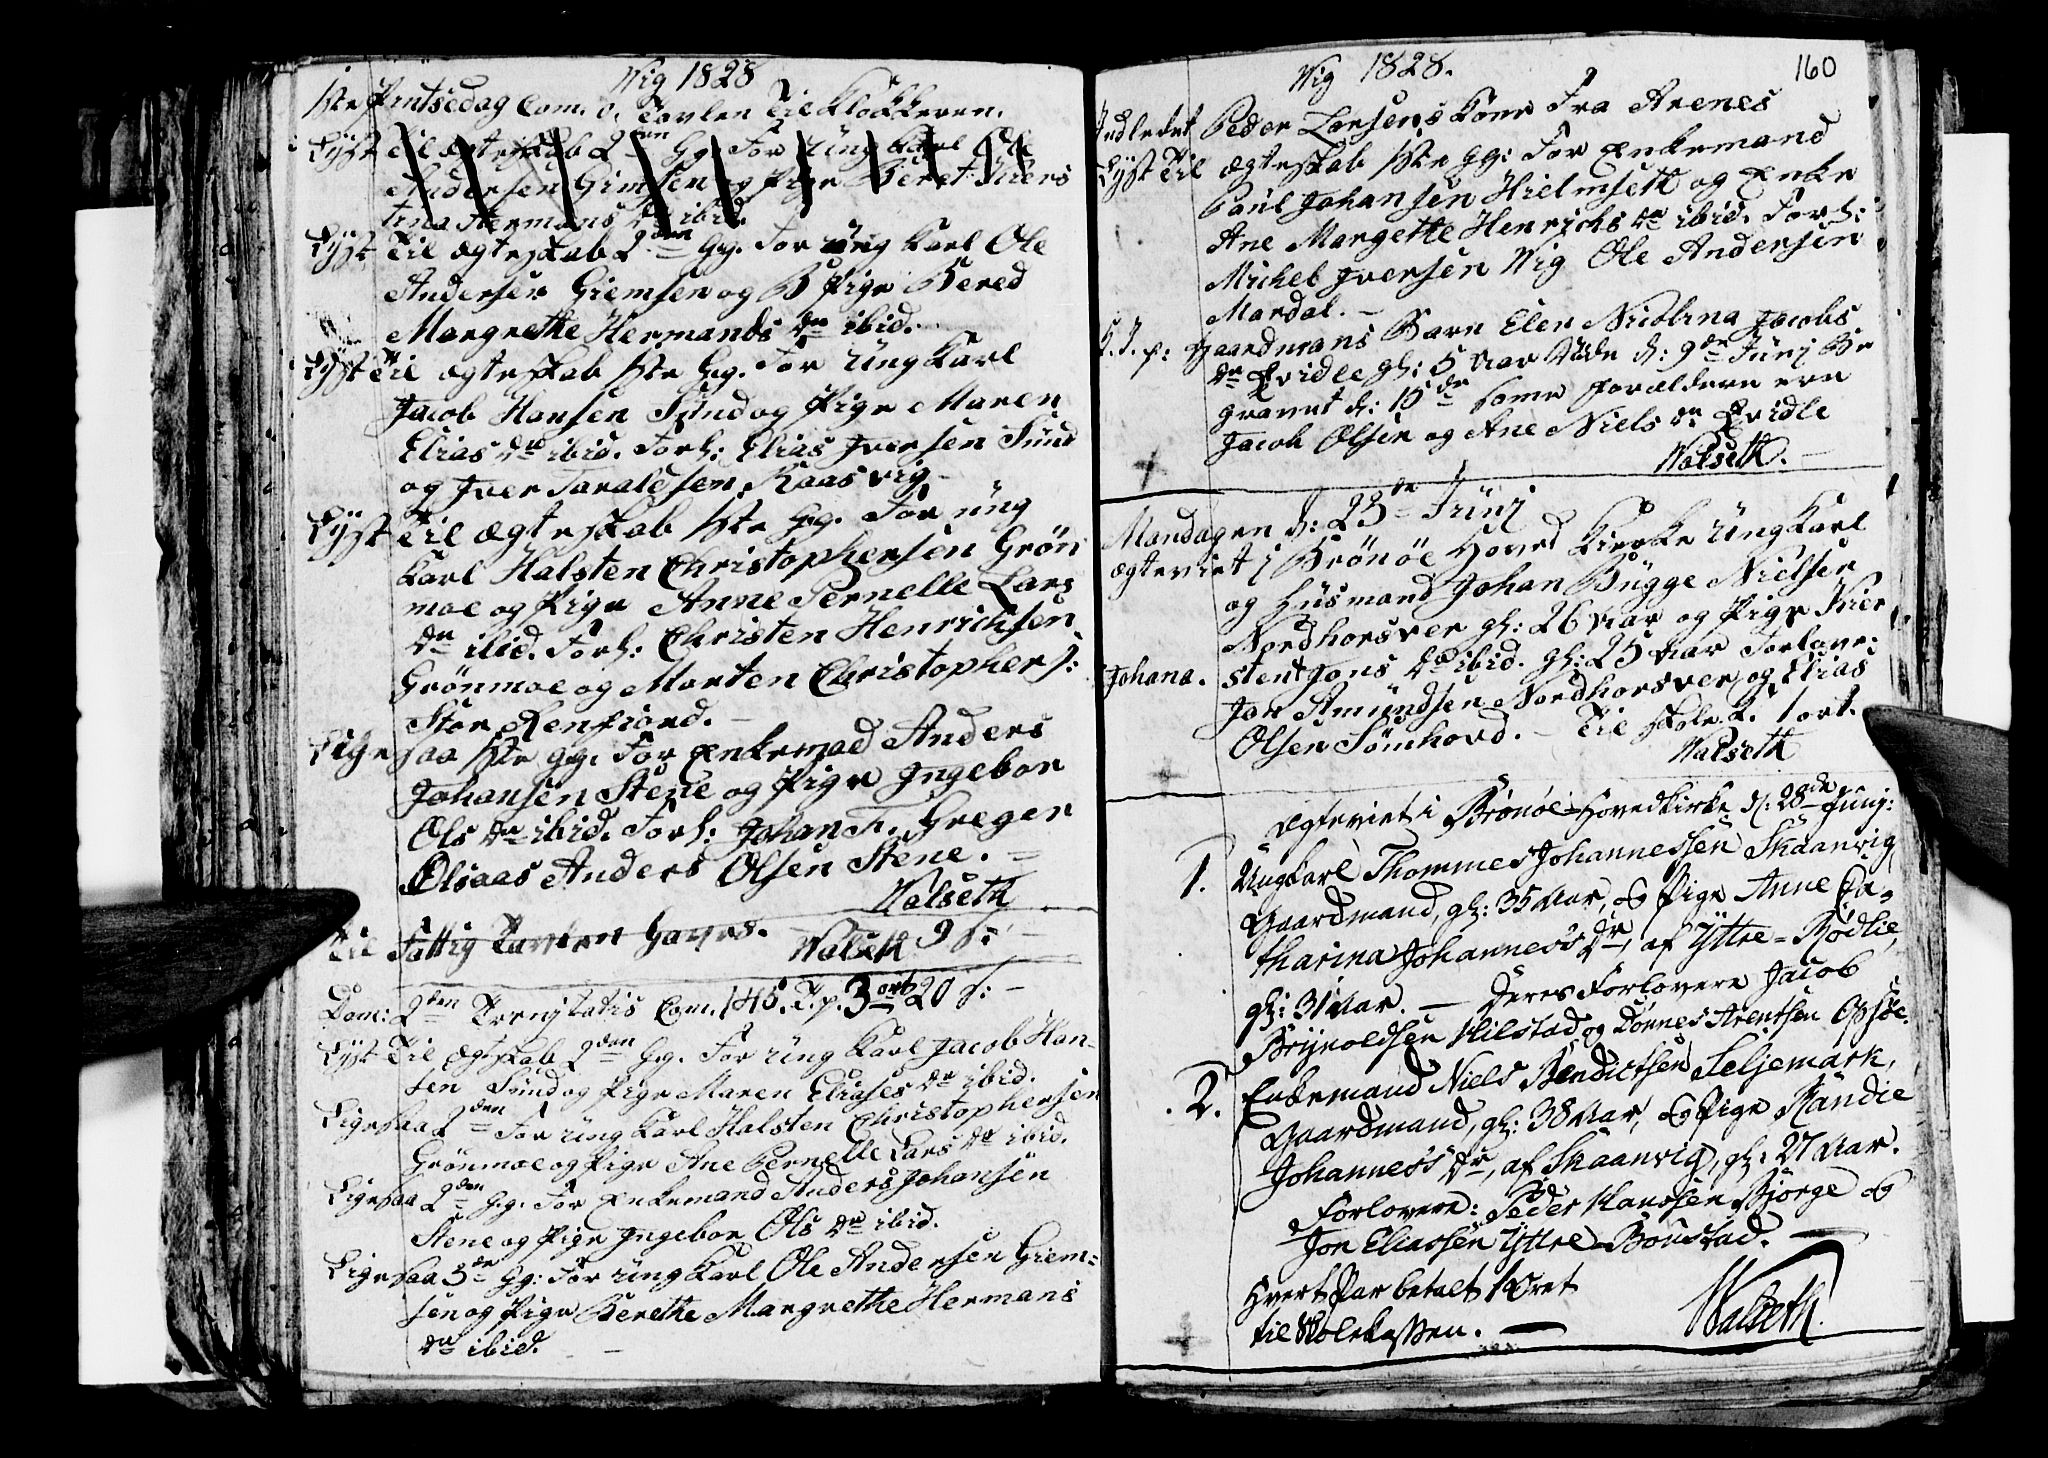 Wig 1828
1ste Pintsedag Com. 0. Tavlen Til Klokkeren.
Lyst Til ægteskab 2den Gg. For ung karl Ole
Andersen Gimsen og Pige Beret Kiers
tina Hermans dr ibid.
Lyst Til ægteskab 2den Gg. For ung karl Ole
Andersen Giemsen og Pige Bered
Margrethe Hermands dr ibid.
Lyst Til ægteskab 1ste Gg. For ung karl
Jacob Hansen Sund og Pige Maren
Elias dr ibid. Forl: Elias Iversen Sund
og Iver Taraldsen Kaasvig
Lyst Til ægteskab 1ste Gg. For ung
karl Halsten Christophersen Grøn
moe og Pige Anne Pernelle Lars
dr ibid. Forl: Christen Henrichsen
Grønmoe og Morten Christophers:
Stor Renfiord. –
Ligesaa 1ste Gg. For Enkemad Anders
Johansen Stene og Pige Ingebor
Ols dr ibid. Forl: Johan F. Greger
Olsaas Anders Olsen Stene. –
Walseth
Til Fattig Tavlen Gaves. Walseth 9 s:
Dom: 2den Trenitatis Com. 145. T. p. 3 ort 20 s: –
Lyst Til ægtskab 2den Gg. For ung karl Jacob Han-
sen Sund og Pige Maren Eliases dr ibid.
Ligesaa 2den For ung karl Halsten Christophersen
Grønmoe og Pige Ane Pernelle Lars dr ibid.
Ligesaa 2den Gg. For Enkemand Anders Johansen
Stene og Pige Ingebor Ols dr ibid.
Ligesaa 3de Gg: For ung karl Ole Andersen Giem-
sen og Pige Berethe Margrethe Hermans
dr ibid. –
Wig 1828.
160
Indledet Peder Larsens kone Fra Arenes
Lyst Til ægteskab 1ste Gg: For Enkemand
Paul Johansen Hielmseth og Enke
Ane Margette Henrichs dr ibid. Forl:
Michel Iversen Wig Ole Andersen
Mardal. –
J. p: Gaardmans Barn Elen Nicolina Jacobs
dr Qvidle gl: 5 Aar Døde d: 9de Junj Be
gravet d: 15de Forældrene ere
Jacob Olsen og Ane Niels dr Qvidle
Walseth. –
Mandagen d: 23de Junj
ægteviet i Brønøe Hoved Kirke Ung karl
og Husmand Johan Bugge Nielsen
Nordhorsver gl: 26 Aar og Pige Kier
Johana. sten Jons dr ibid. gl: 25 Aar Forlover:
Jon Amundsen Nordhorsver og Elias
Olsen Sømhovd. – Til skole. 2. 1 ort.
Walseth
Ægteviet i Brønøe Hovedkirke d: 28de Junj:
1. Ungkarl Thommes Johannessen Skaanvig
Gaardmand, gl: 35 Aar, og Pige Anne Ca-
tharina Johannes's dr, af Yttre-Rødlie,
gl: 31 Aar. – Deres Forlovere Jacob
Brynoldsen Hilstad og Dønnes Arentsen Opsøe.
2. Enkemand Niels Bendictsen Seljemark,
Gaardmand, gl: 38 Aar, og Pige Randie
Johannes's dr, af Skaanvig, gl: 27 Aar.
Forlovere: Peder Hanssen Bjørge og
Jon Eliassen Yttre-Boustad. –
Hvert Par betalt 1 Ort
til Skolekassen. –
Walseth